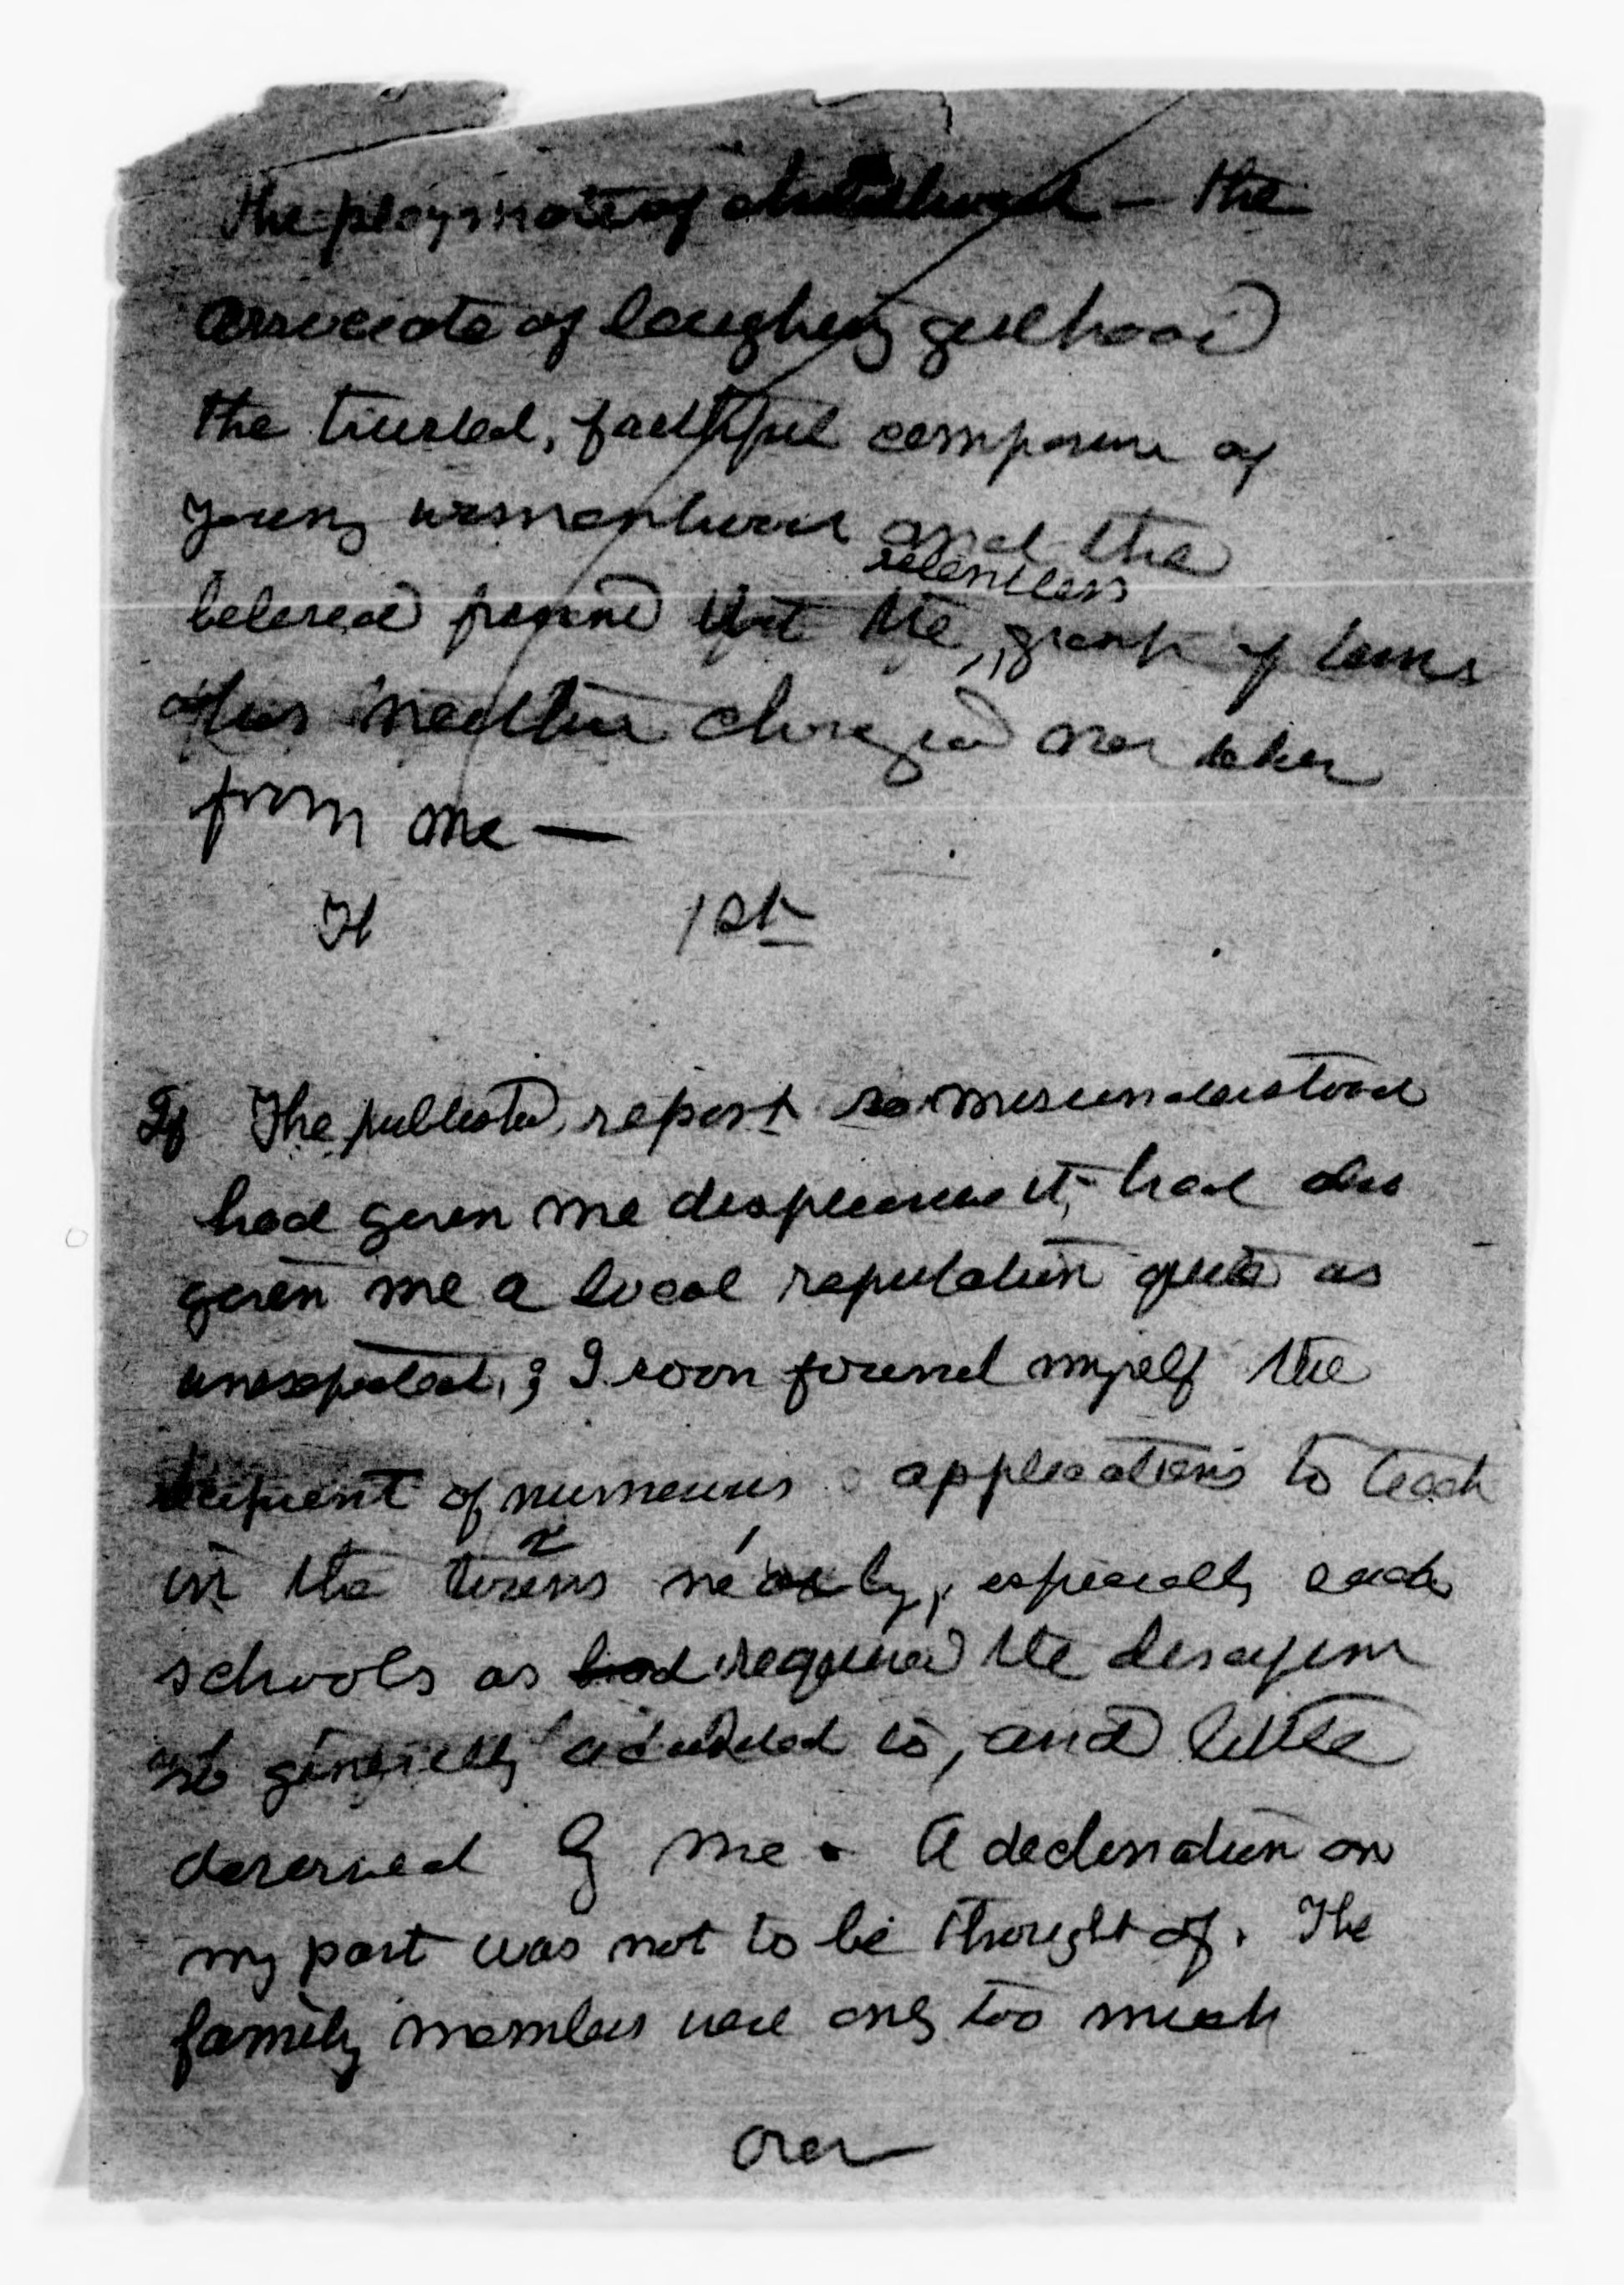 the playmate of childhood — the
associate of laughing girlhood
the trusted, faithful compan of
young womanhood and the
relentless
beloved friend that the grasp of
has neither changed nor taken
from me —
If 1st
If The published report so misunderstood
had given me displeasure it, had also
given me a local reputation quite as
unexpected, & I soon found myself the
recipient of numerous applications to teach
in the towns near by, especially such
schools as had required the discipline
so generally alluded to, and little
deserved by me. A declination on
my part was not to be thought of. The
family members were only too much
over